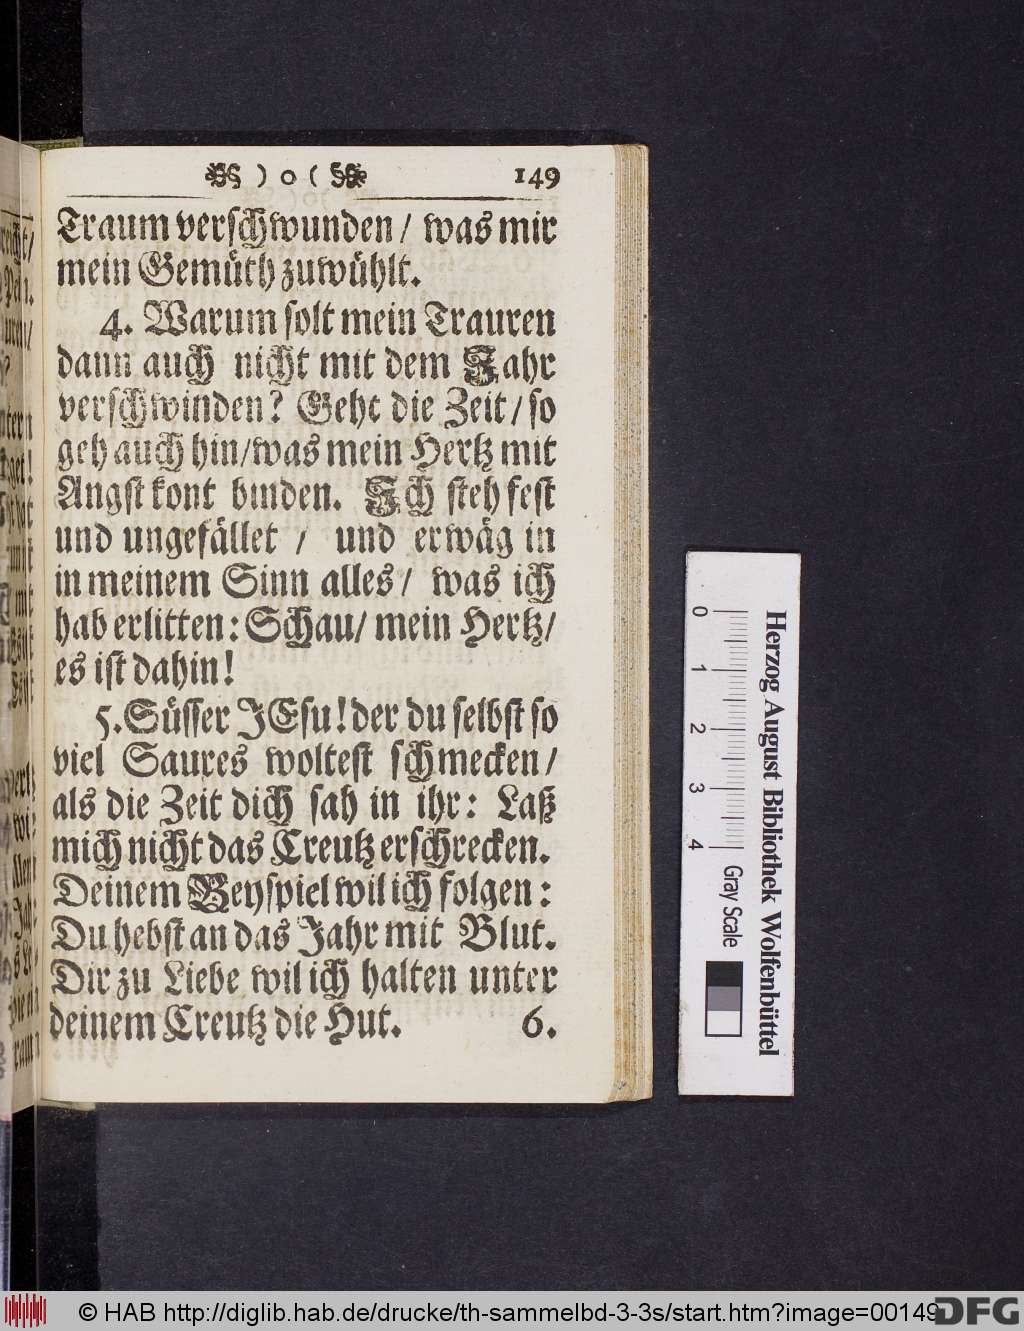 ) o ( 149
Traum verschwunden / was mir
mein Gemüth zuwühlt.
4. Warum solt mein Trauren
dann auch nicht mit dem Jahr
verschwinden? Geht die Zeit / so
geh auch hin / was mein Hertz mit
Angst kont binden. Ich steh fest
und ungefället / und erwäg in
in meinem Sinn alles / was ich
hab erlitten: Schau / mein Hertz /
es ist dahin!
5. Süsser JEsu! der du selbst so
viel Saures woltest schmecken /
als die Zeit dich sah in ihr: Laß
mich nicht das Creutz erschrecken.
Deinem Beyspiel wil ich folgen:
Du hebst an das Jahr mit Blut.
Dir zu Liebe wil ich halten unter
deinem Creutz die Hut. 6.
0 1 2 3 4
Gray Scale
Herzog August Bibliothek Wolfenbüttel
© HAB http://diglib.hab.de/drucke/th-sammelbd-3-3s/start.htm?image=00149
DFG